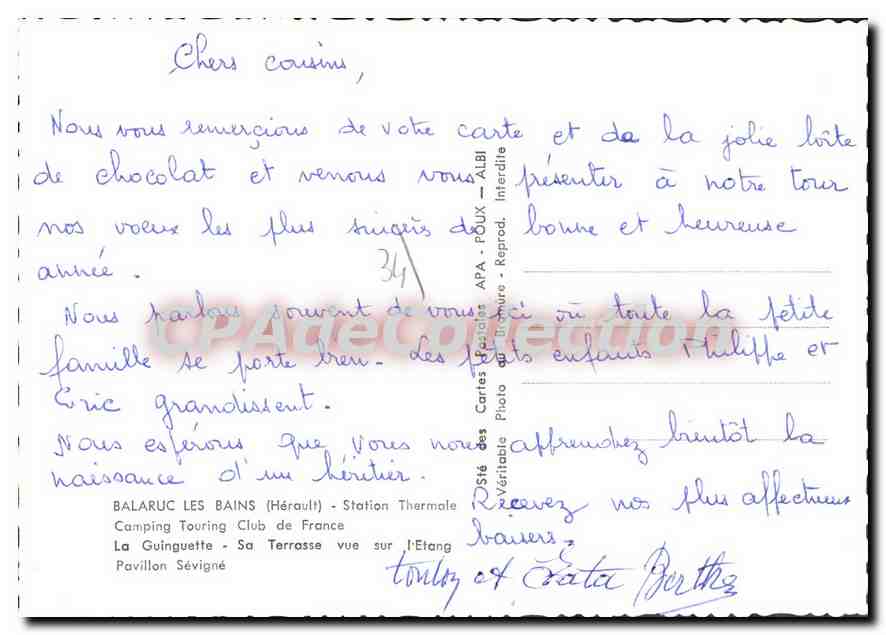 Chers cousins,
Nous vous remerçions de votre carte et de la jolie boîte
de chocolat et venons vous présenter à notre tour
nos voeux les plus sincères de bonne et heureuse
année.
34
Nous parlons souvent de vous ici où toute la petite
famille se porte bien. Les petits enfants Philippe et
Eric grandissent.
Nous espérons que vous nous apprendrez bientôt la
naissance d'un héritier.
Recevez nos plus affectueux
baisers.
et Berthe
BALARUC LES BAINS (Hérault) - Station Thermale
Camping Touring Club de France
La Guinguette - Sa Terrasse vue sur l'Etang
Pavillon Sévigné
Sté des Cartes Postales APA - POUX — ALBI
Véritable Photo au Bromure - Reprod. Interdite
CPAdeCollection